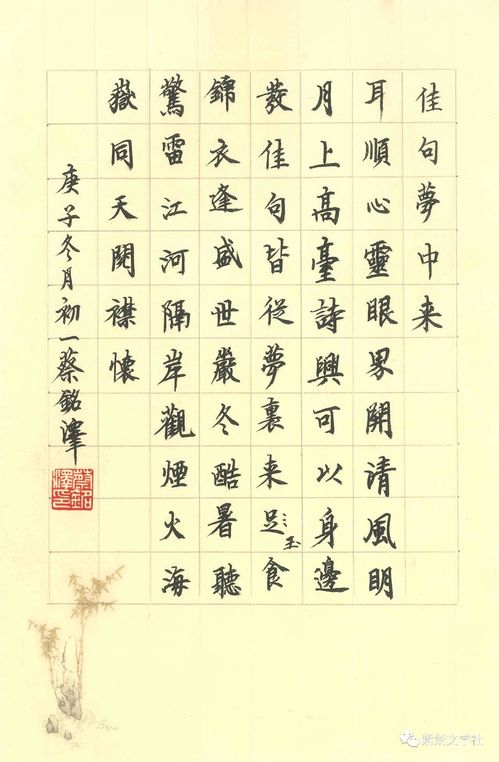 佳句夢中来
耳順心靈眼界開請風明
月上高臺詩興可以身邊
發佳句皆從夢裏来足玉食
錦衣逢盛世嚴冬酷暑聽
驚雷江河隔岸觀煙火海
嶽同天開襟懷
庚子冬月初一蔡銘澤
蔡銘澤印